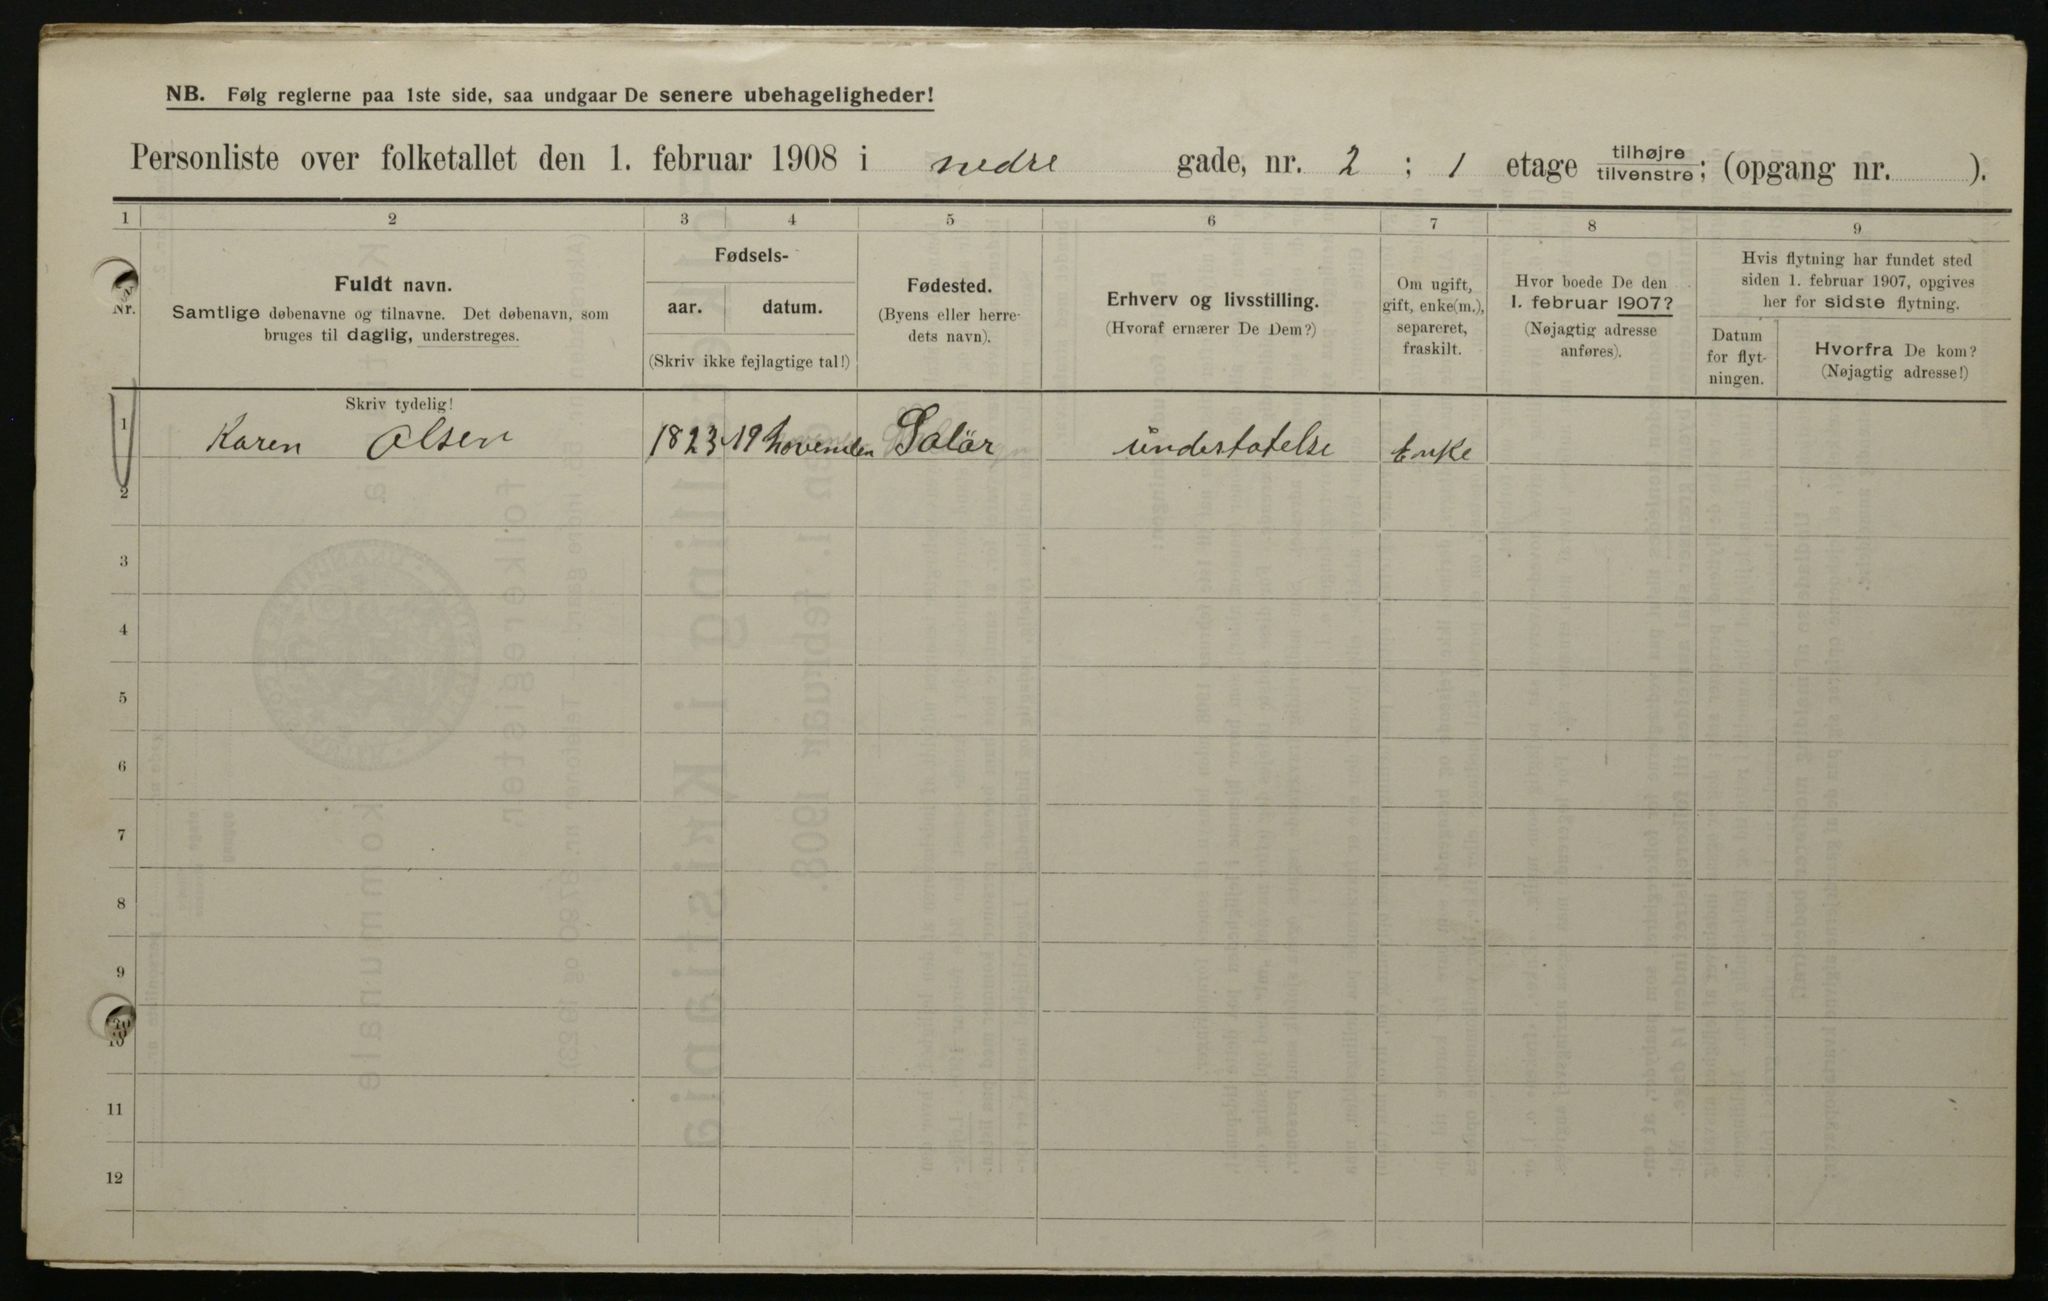 NB. Følg reglerne paa 1ste side, saa undgaar De senere ubehageligheder!
Personliste over folketallet den 1. februar 1908 i nedre gade, nr. 2 ; 1 etage tilhøjre tilvenstre; (opgang nr. ).
1 2 3 4 5 6 7 8 9
Nr.
Fuldt navn.
Samtlige døbenavne og tilnavne. Det døbenavn, som
bruges til daglig, understreges.
Skriv tydelig!
Fødsels-
aar. datum.
(Skriv ikke fejlagtige tal!)
Fødested.
(Byens eller herre-
dets navn).
Erhverv og livsstilling.
(Hvoraf ernærer De Dem?)
Om ugift,
gift, enke(m.),
separeret,
fraskilt.
Hvor boede De den
1. februar 1907?
(Nøjagtig adresse
anføres).
Hvis flytning har fundet sted
siden 1. februar 1907, opgives
her for sidste flytning.
Datum
for flyt-
ningen.
Hvorfra De kom?
(Nøjagtig adresse!)
1 Karen Olsen 1823 19 Solör understøtelse Enke
2
3
4
5
6
7
8
9
10
11
12